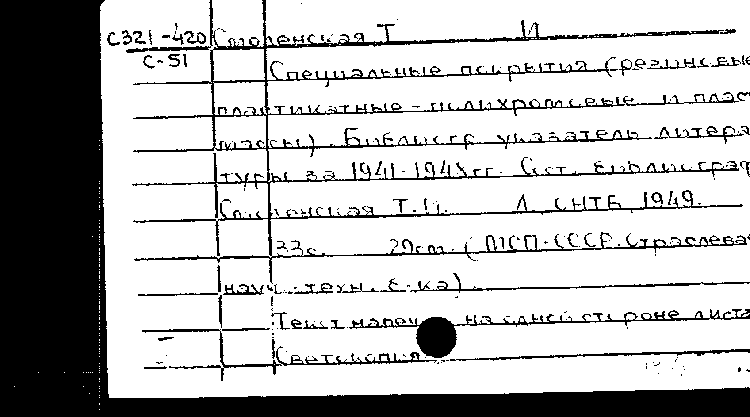 С321-420 Смоленская Т И
С-51
Специальные покрытия (резиновые
пластикатные-полихромовые и пласт
массы). Библиогр указатель литера
туры за 1941-194 гг. Сост. библиограф
Смоленская Т.И. Л. СНТБ, 1949.
33с. 20см. (МСП. СССР. Отраслевая
науч.-техн. б-ка).
Текст напеч на одной стороне листа
Светокопия